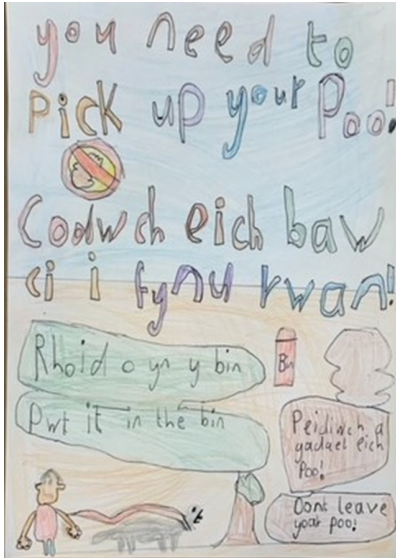 you need to
Pick up your Poo!
Codwch eich baw
ci i fynu rwan!
Rhoid o yn y bin
Pwt it in the bin
Bin
Peidiwch a
gadael eich
Poo!
Dont leave
your poo!